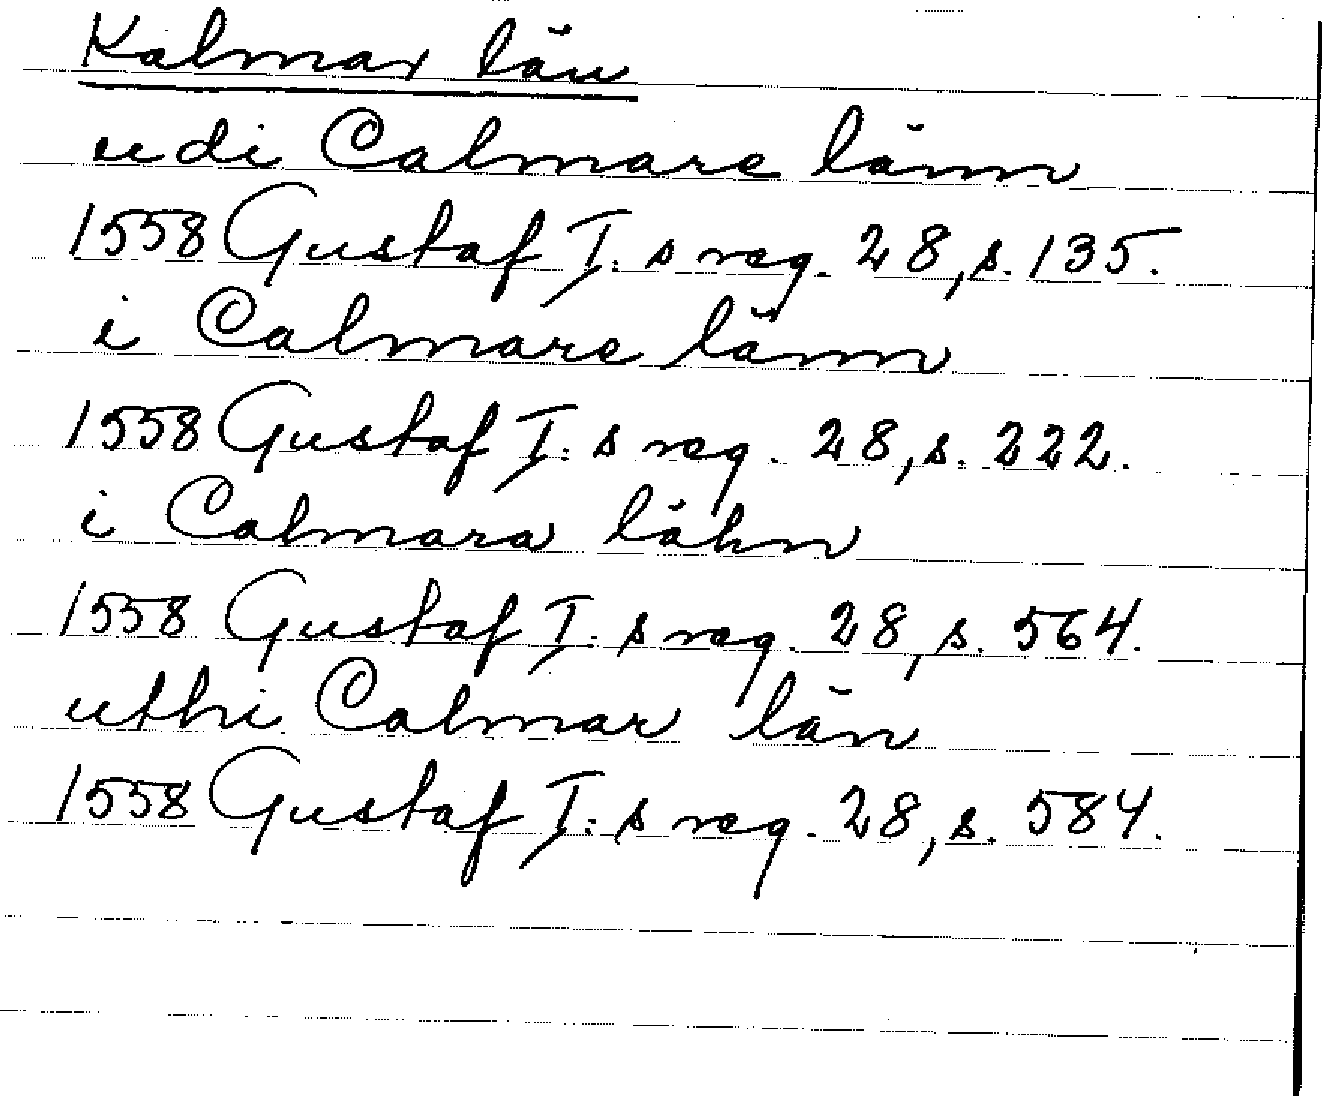 Kalmar län
udi Calmare länn
1558 Gustaf I:s reg. 28, s. 135.
i Calmare länn
1558 Gustaf I:s reg. 28, s. 222.
i Calmara lähn
1558 Gustaf I:s reg. 28, s. 564.
uthi Calmar län
1558 Gustaf I:s reg. 28, s. 584.